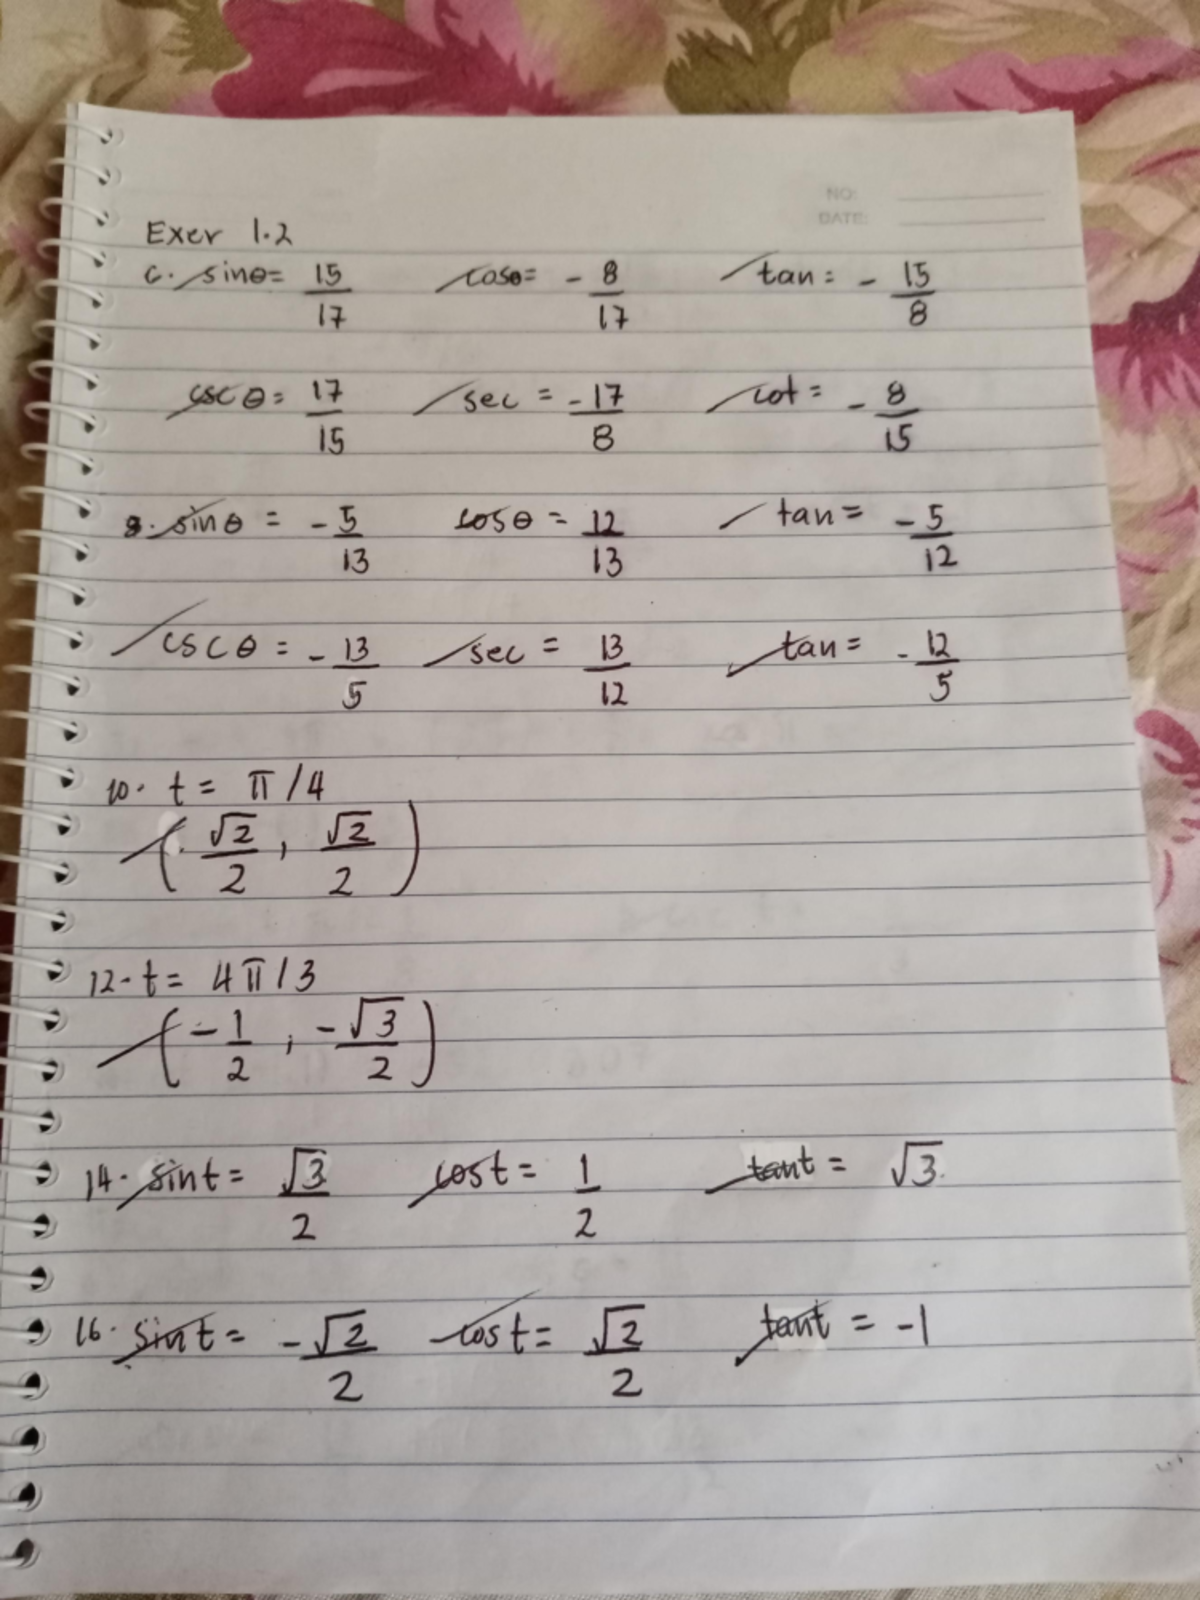 NO:
DATE:
Exer 1.2
6. sinθ= 15/17 cosθ= - 8/17 tan = - 15/8
cscθ = 17/15 sec = -17/8 cot = - 8/15
8. sinθ = -5/13 cosθ = 12/13 tan = -5/12
cscθ = -13/5 sec = 13/12 tan = -12/5
10. t = π/4
(√2/2, √2/2)
12. t = 4π/3
(-1/2, -√3/2)
14. sin t = √3/2 cos t = 1/2 tan t = √3
16. sin t = -√2/2 cos t = √2/2 tan t = -1